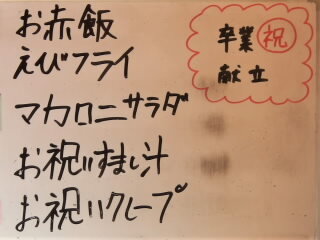 お赤飯
えびフライ
マカロニサラダ
お祝いすまし汁
お祝いクレープ
卒業 祝
献立